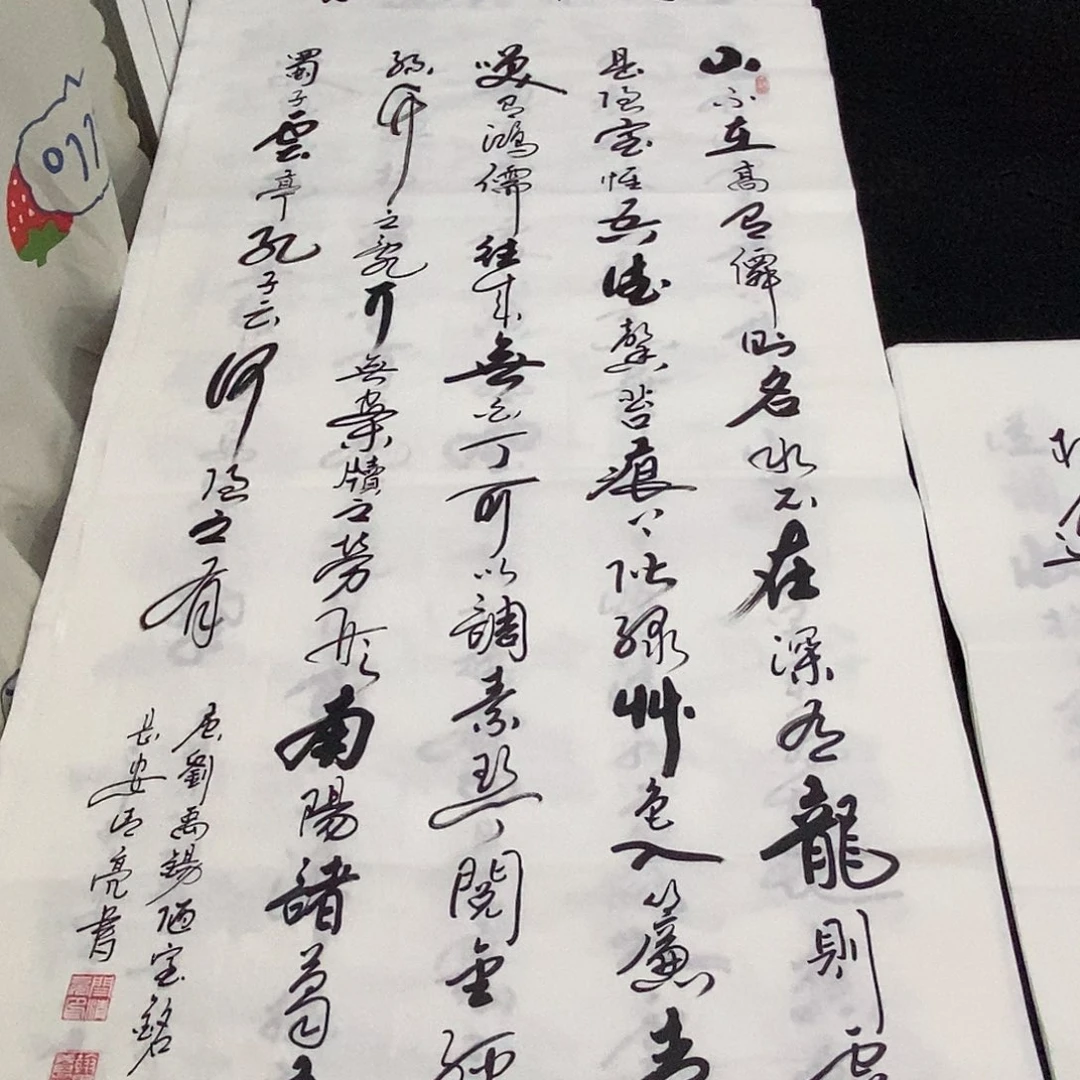 山不在高有僊則名水不在深有龍則
是陋室惟吾德馨苔痕上階綠艸色入簾青
笑有鴻儒往來無白丁可以調素琴閱金經
絲竹之亂耳無案牘之勞形南陽諸葛
蜀子雲亭孔子云何陋之有
唐劉禹錫陋室銘
長安亮書